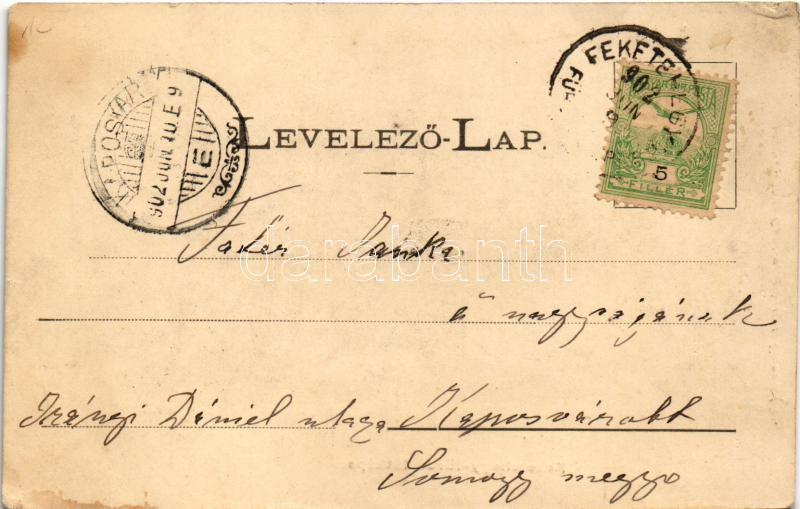 FEKETE
902
JUN
KAPOSVÁR
902 JUN 10 E 9
LEVELEZŐ-LAP.
5
FILLÉR
Fakér Janka
darabanth
ő nagyságának
Irányi Dániel utcza Kaposvárott
Somogy megye